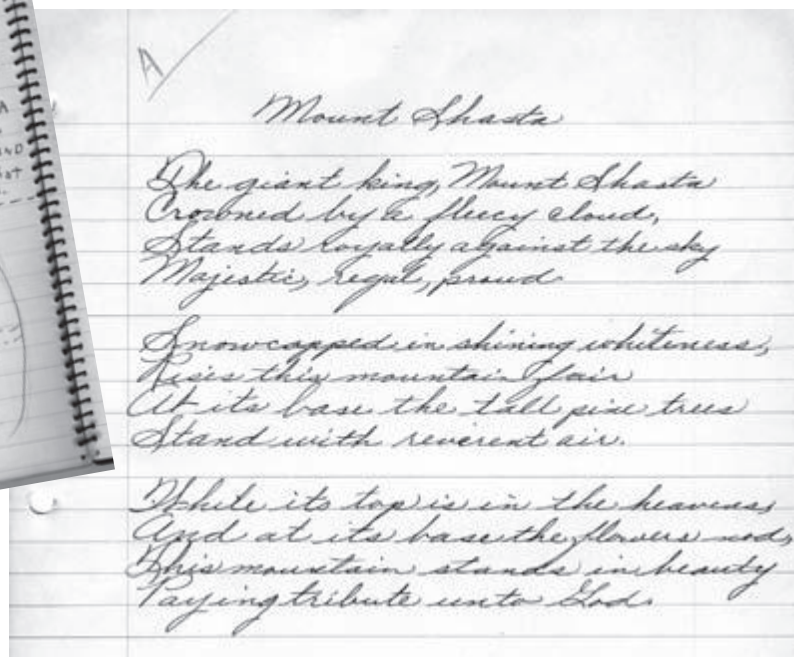 A
Mount Shasta
The giant king, Mount Shasta
Crowned by a fleecy cloud,
Stands royally against the sky
Majestic, regal, proud
Snowcapped in shining whiteness,
Rises this mountain fair
At its base the tall pine trees
Stand with reverent air.
While its top is in the heavens,
And at its base the flowers nod,
This mountain stands in beauty
Paying tribute unto God.